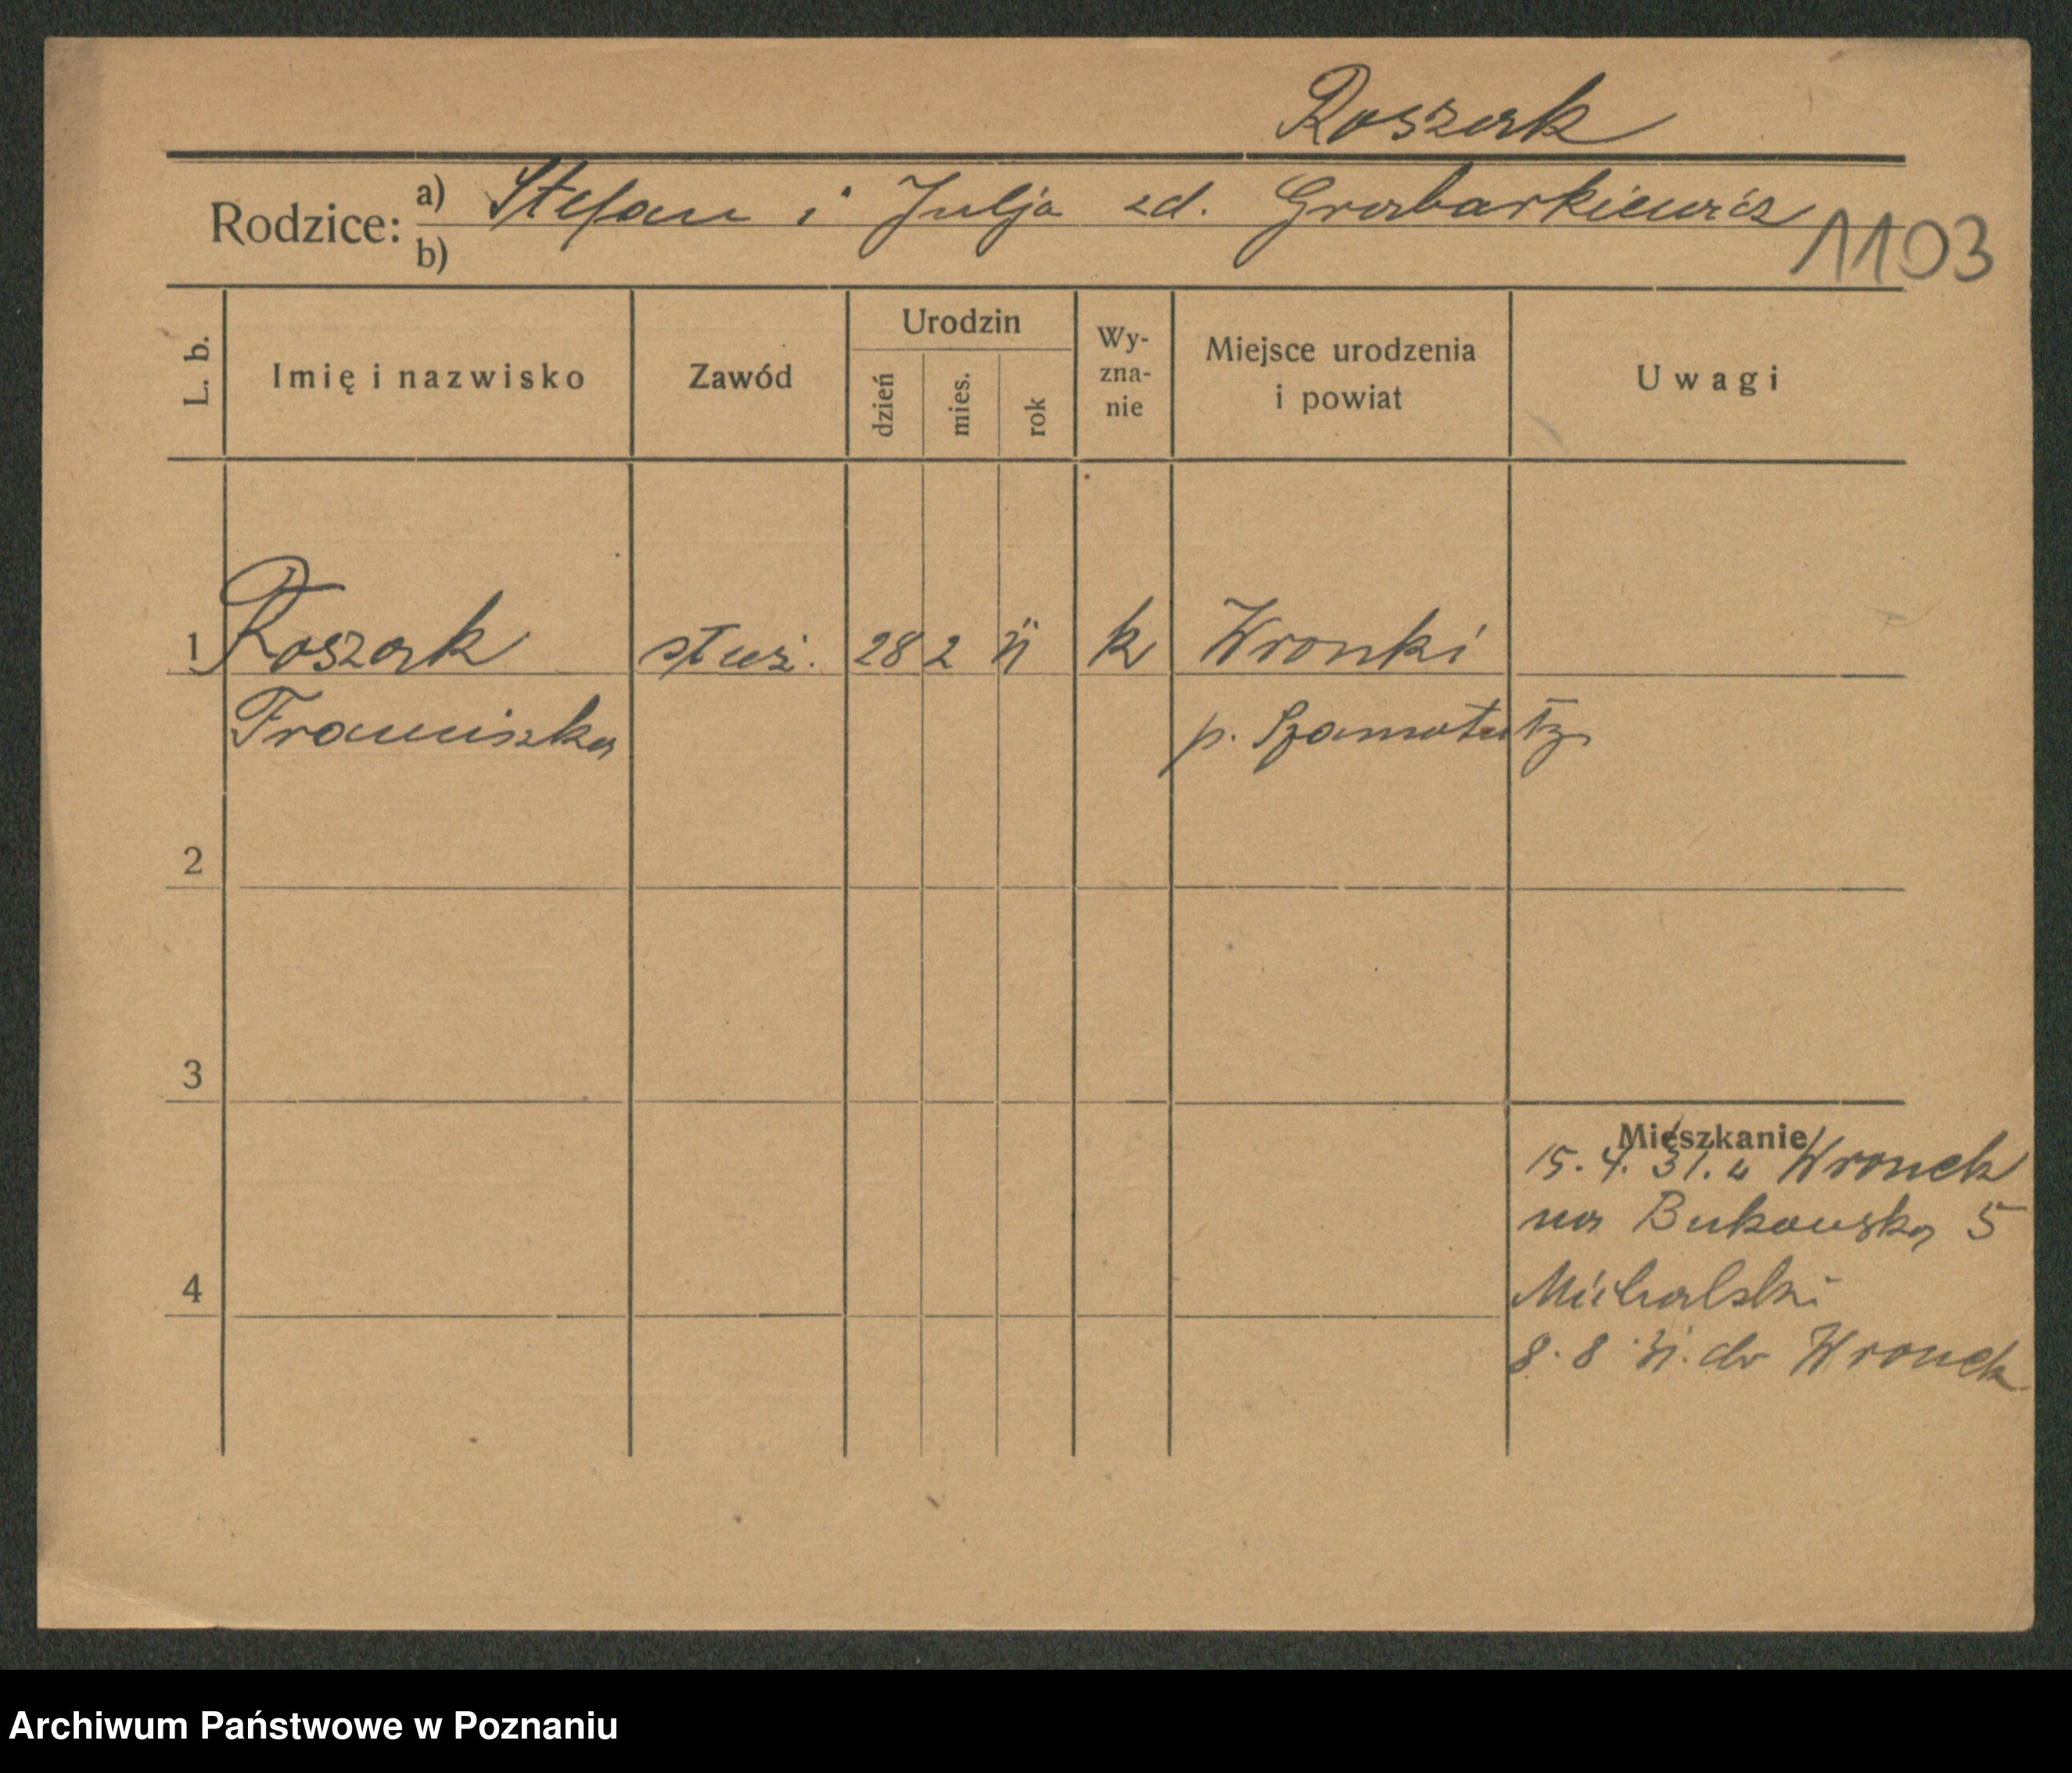 Roszak
Rodzice: a) Stefan i Julja zd. Grabarkiewicz
b)
1103
L. b.
Imię i nazwisko
Zawód
Urodzin
dzień
mies.
rok
Wy-
zna-
nie
Miejsce urodzenia
i powiat
Uwagi
1 Roszak służ. 28 2 11 k Wronki
Franciszka p. Szamotuły
2
3
Mieszkanie
15. 4. 31. z Wronek
na Bukowską 5
4
Michalski
8. 8 31. do Wronek
Archiwum Państwowe w Poznaniu